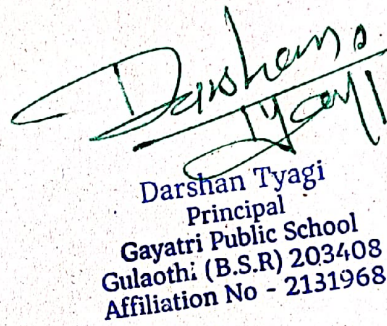 Darshan
Tyagi
Darshan Tyagi
Principal
Gayatri Public School
Gulaothi (B.S.R) 203408
Affiliation No - 2131968